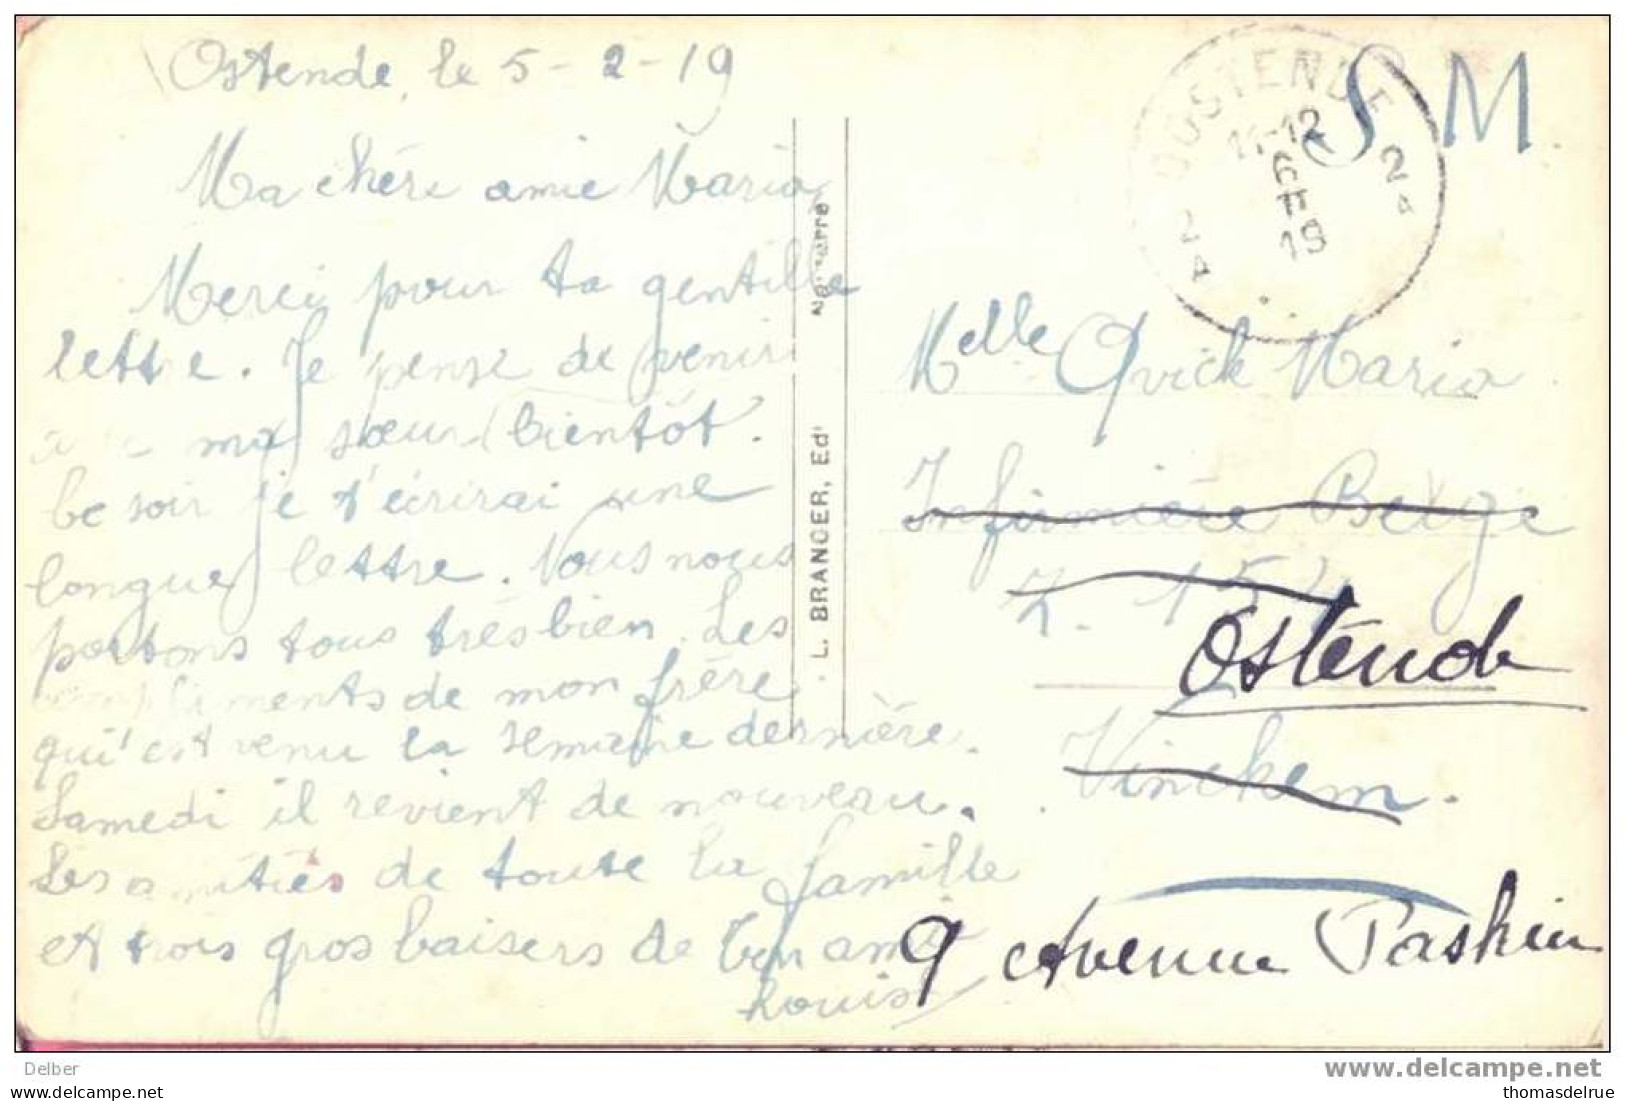 Ostende, le 5-2-19
Ma chère amie Maria,
Merci pour ta gentille
lettre. Je pense de venir
ma sœur bientôt.
Ce soir je t'écrirai une
longue lettre. Nous nous
portons tous très bien. Les
compliments de mon frère
qui est venu la semaine dernière.
Samedi il revient de nouveau.
Les amitiés de toute la famille
et trois gros baisers de ton amie
Louis
L. BRANGER, Edr
OOSTENDE
11-12
6
II
19
2A
2A
S M
Melle Quick Maria
Infirmière Belge
Z. 154
Ostende
Vinckem.
9 Avenue
Delber
www.delcampe.net
All pictures are copyrighted
thomasdelrue